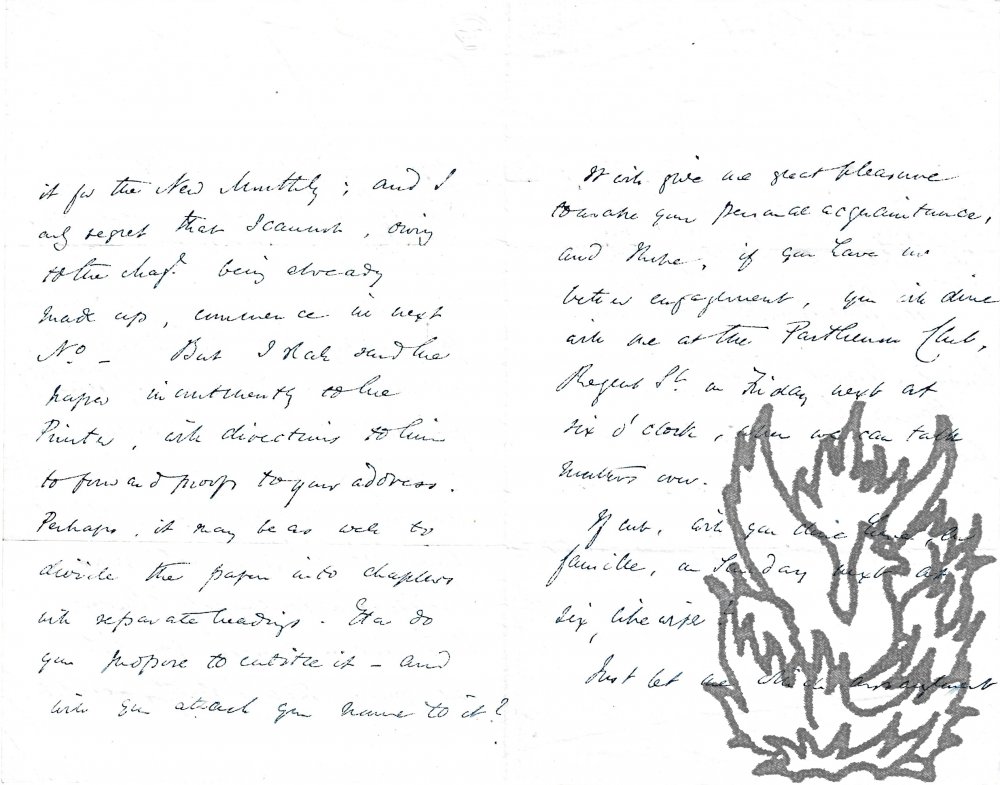 it for the New Monthly; and I
only regret that I cannot, owing
to the Magᵉ. being already
made up, commence in next
Nº – But I shall send the
paper incontinently to the
Printer, with directions to him
to forward proofs to your address.
Perhaps, it may be as well to
divide the paper into chapters
with separate headings. How do
you propose to entitle it – and
will you attach your name to it?
It will give me great pleasure
to make your personal acquaintance,
and I hope, if you have no
better engagement, you will dine
with me at the Parthenon Club,
Regent St. on Friday next at
six o'clock, when we can talk
matters over.
If not, will you dine here, en
famille, on Sunday next at
six, likewise?
Just let me which arrangement